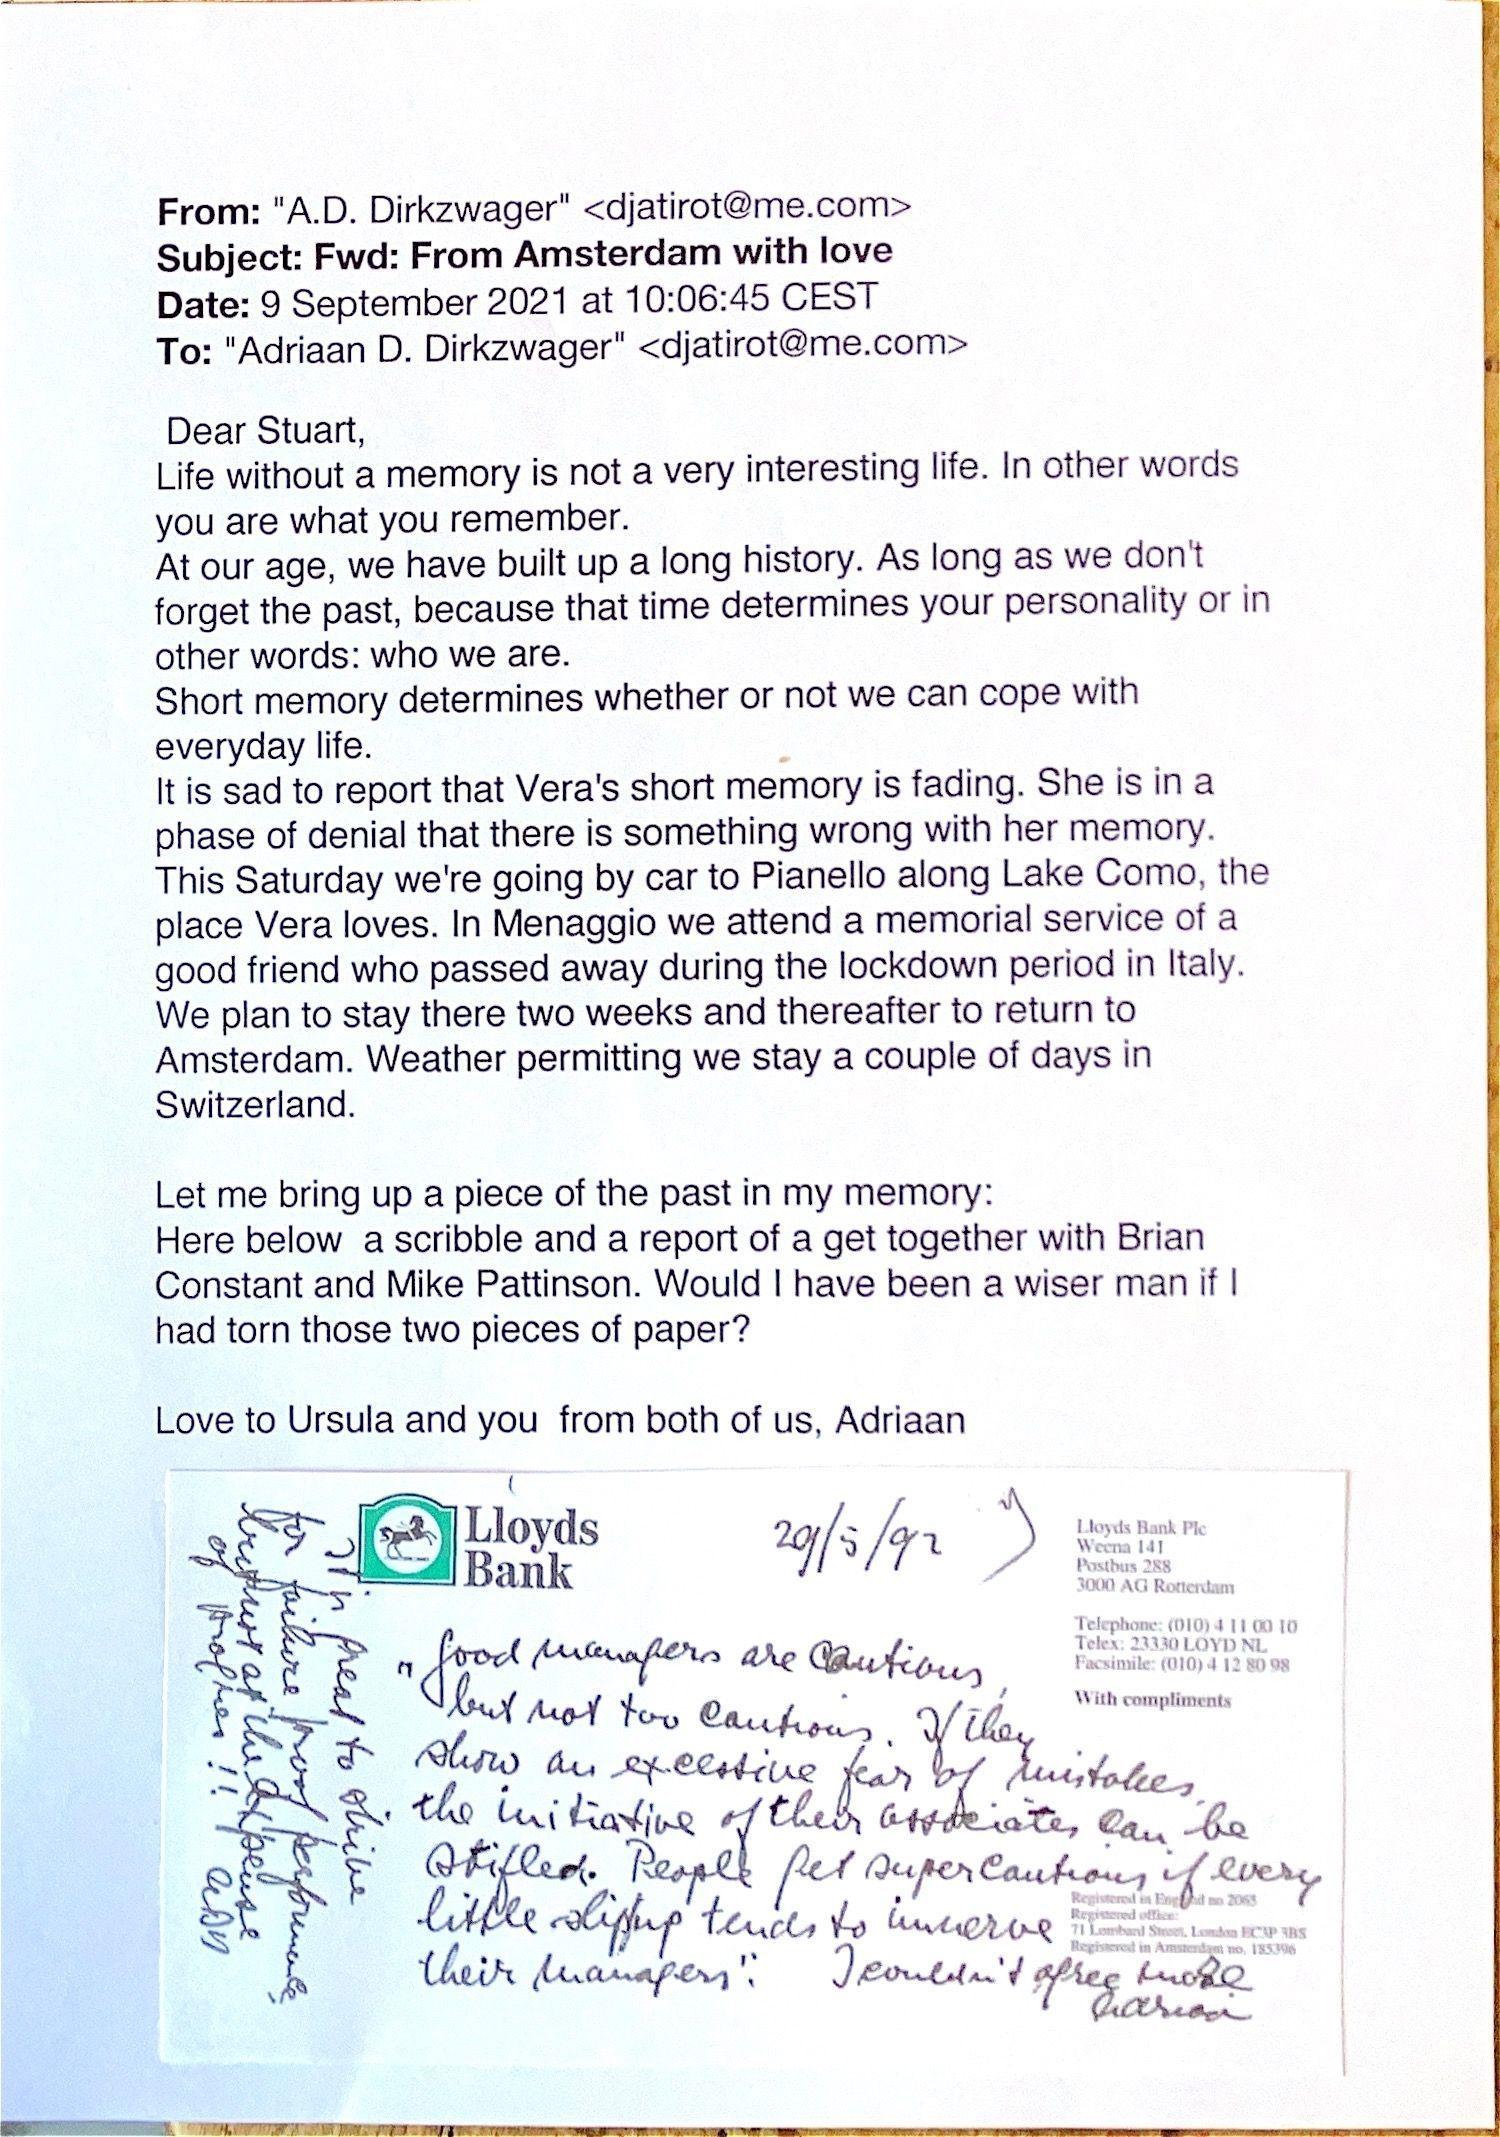 From: "A.D. Dirkzwager" <djatirot@me.com>
Subject: Fwd: From Amsterdam with love
Date: 9 September 2021 at 10:06:45 CEST
To: "Adriaan D. Dirkzwager" <djatirot@me.com>
Dear Stuart,
Life without a memory is not a very interesting life. In other words
you are what you remember.
At our age, we have built up a long history. As long as we don't
forget the past, because that time determines your personality or in
other words: who we are.
Short memory determines whether or not we can cope with
everyday life.
It is sad to report that Vera's short memory is fading. She is in a
phase of denial that there is something wrong with her memory.
This Saturday we're going by car to Pianello along Lake Como, the
place Vera loves. In Menaggio we attend a memorial service of a
good friend who passed away during the lockdown period in Italy.
We plan to stay there two weeks and thereafter to return to
Amsterdam. Weather permitting we stay a couple of days in
Switzerland.
Let me bring up a piece of the past in my memory:
Here below  a scribble and a report of a get together with Brian
Constant and Mike Pattinson. Would I have been a wiser man if I
had torn those two pieces of paper?
Love to Ursula and you  from both of us, Adriaan
Lloyds
Bank
29/5/92
Lloyds Bank Plc
Weena 141
Postbus 288
3000 AG Rotterdam
Telephone: (010) 4 11 00 10
Telex: 23330 LOYD NL
Facsimile: (010) 4 12 80 98
With compliments
"Good managers are cautious,
but not too cautious. If they
show an excessive fear of mistakes,
the initiative of their associates can be
stifled. People get supercautious if every
little slipup tends to unnerve
their managers". I couldn't agree more
Adriaan
Registered in England no 2065
Registered office:
71 Lombard Street, London EC3P 3BS
Registered in Amsterdam no. 185396
It is great to strive
for failure proof performance,
but not at the expense
of progress!! ADD